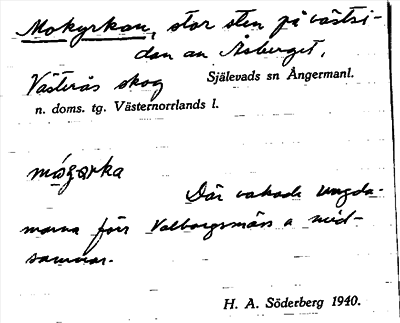 Mokyrkan, stor sten på västsi-
dan av Åsberget.
Västerås skog Själevads sn Ångermanl.
n. doms. tg. Västernorrlands l.
Där vakade ungdo-
marna förr Valborgsmäss o mid-
sommar.
H. A. Söderberg 1940.